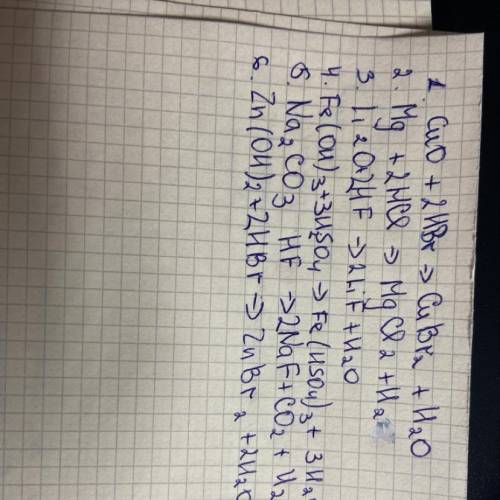 1. CuO + 2HBr → CuBr2 + H2O
2. Mg + 2HCl → MgCl2 + H2
3. Li2O+2HF → 2LiF + H2O
4. Fe(OH)3+3H2SO4 → Fe(HSO4)3 + 3H2
5. Na2CO3 HF → 2NaF + CO2 + H2
6. Zn(OH)2+2HBr → ZnBr2 + 2H2O